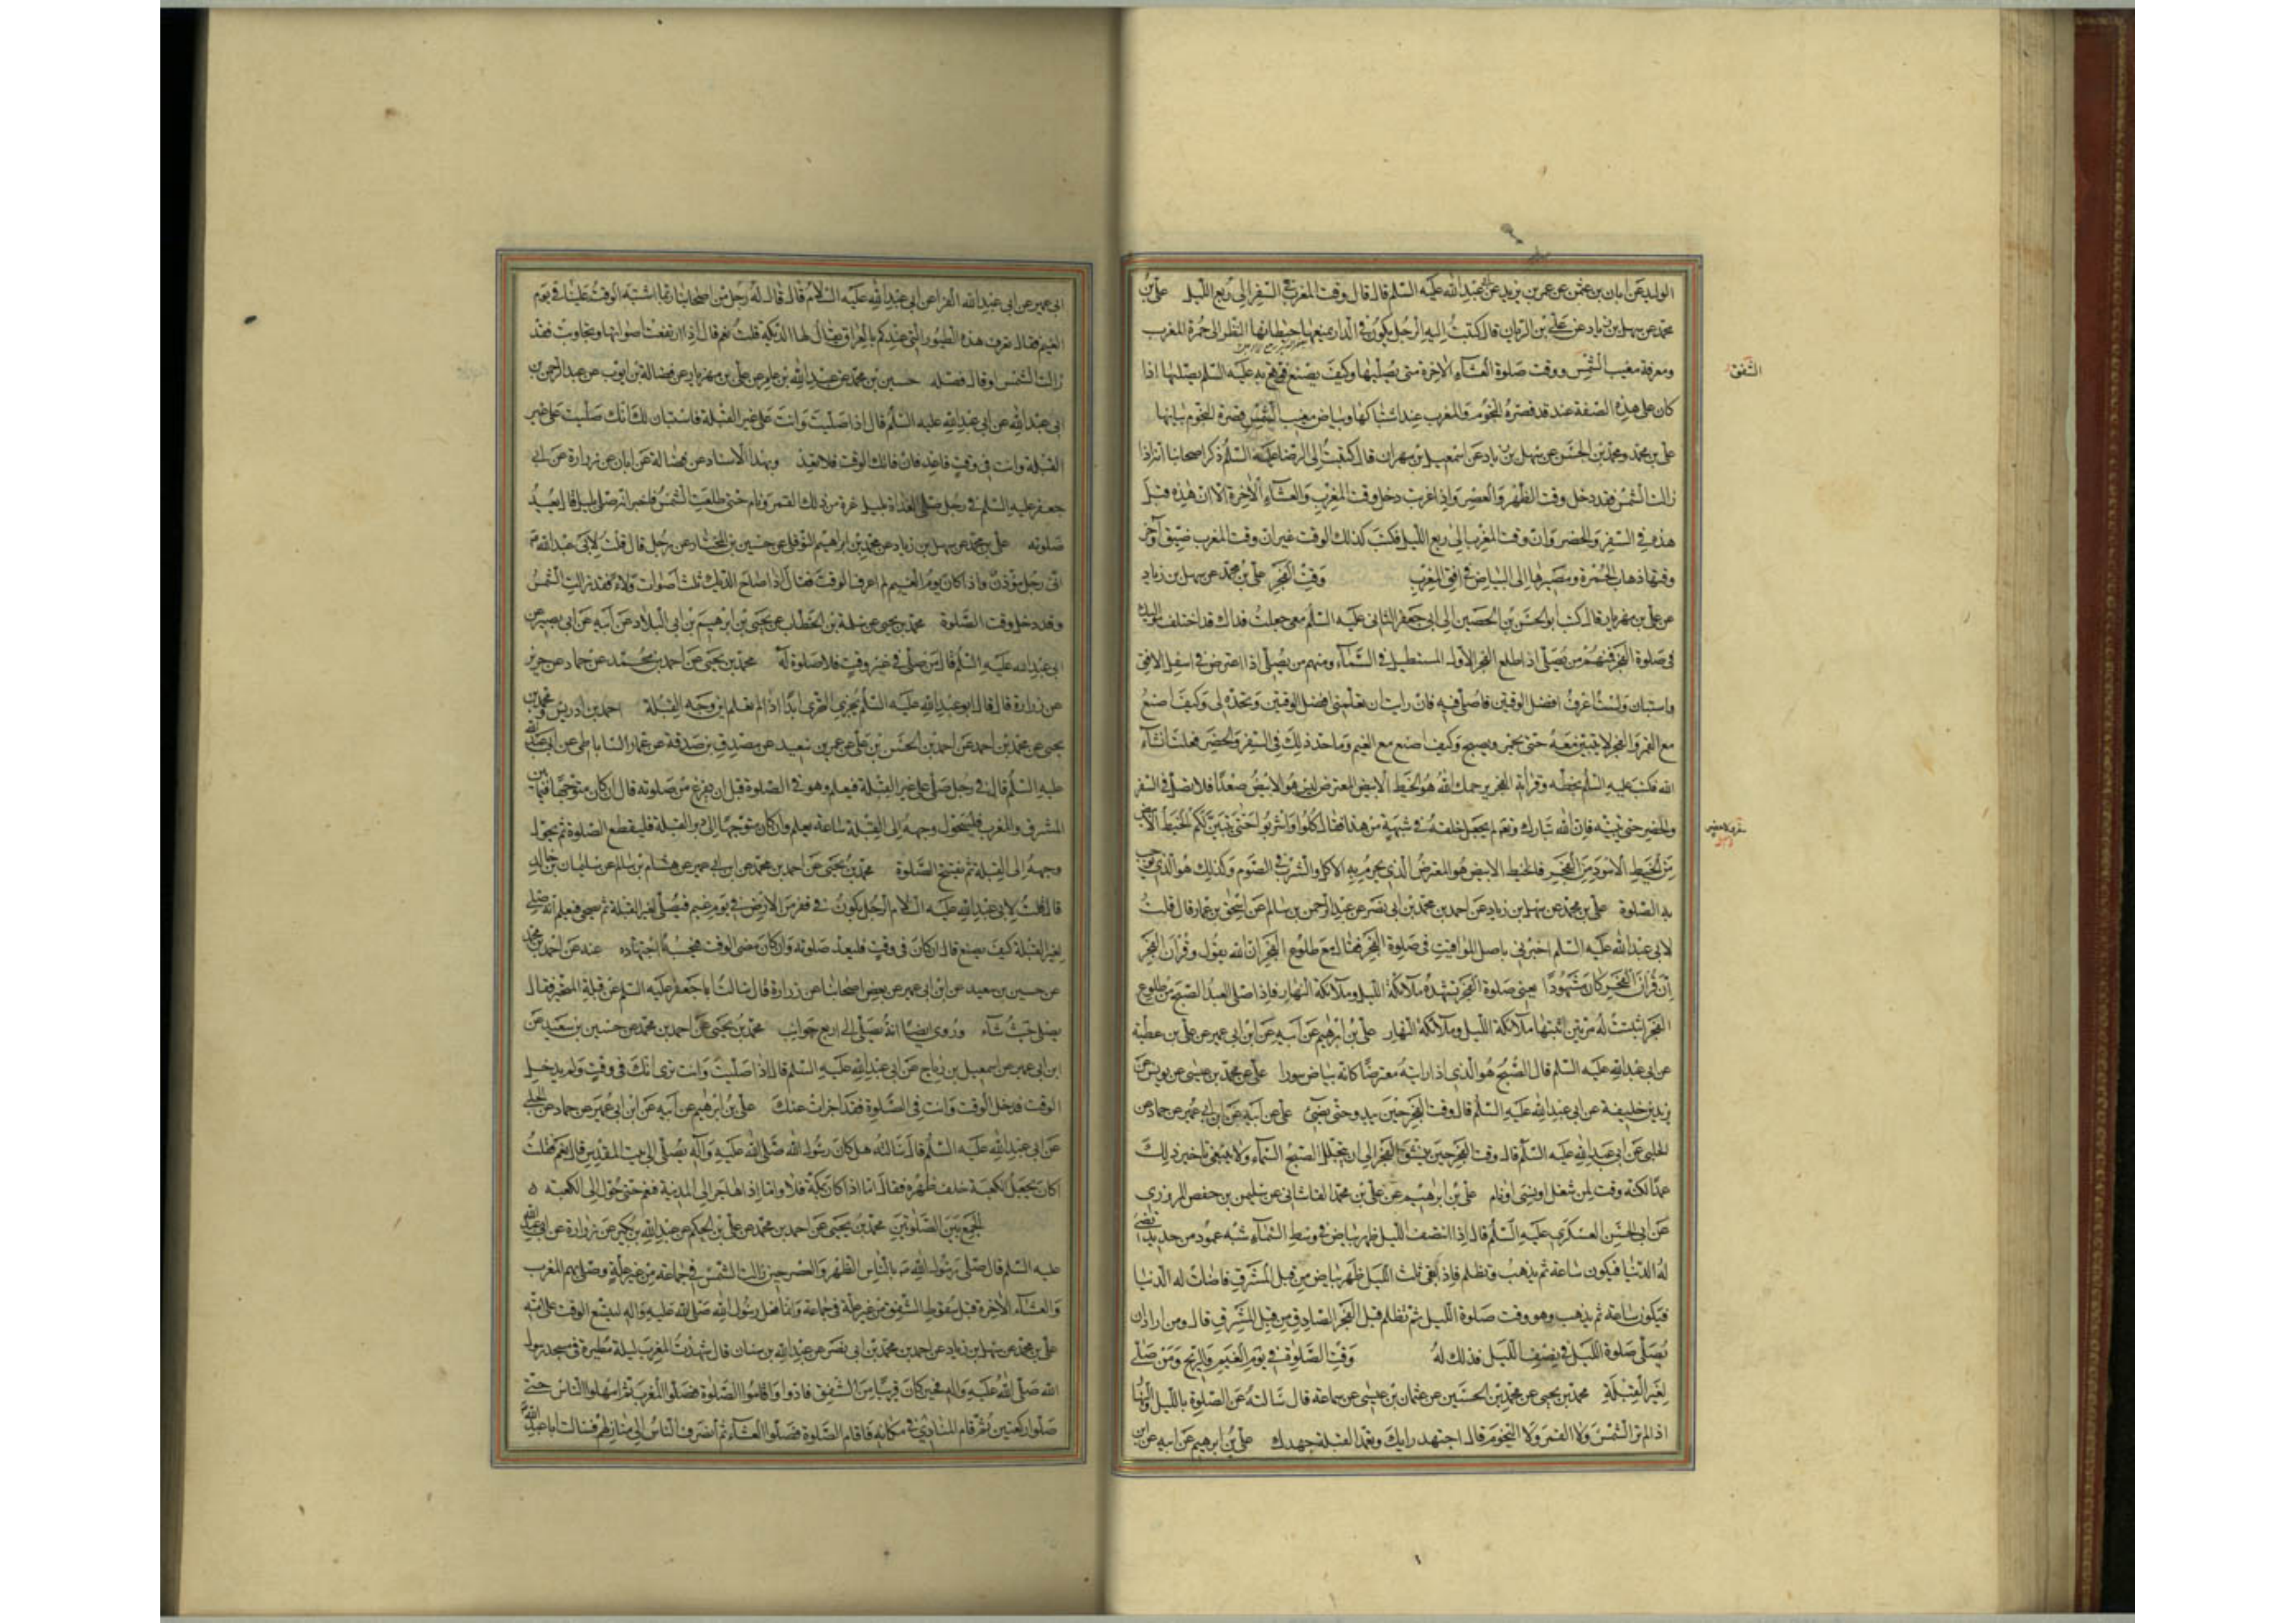 الوليد عن ابان بن عثمن عن عمر بن يزيد عن ابى عبد الله عليه السلم قال قال وقت المغرب فى السفر الى ربع الليل علىّ بن
محمد عن سهل بن زياد عن علىّ بن الريان قال كتبت اليه الرجل يكون فى الدار تمنعها حيطانها النظر الى حمرة المغرب
ومعرفة مغيب الشمس ووقت صلوة العشاء الاخرة متى يصليها وكيف يصنع فوقع عليه السلم يصليها اذا
الشفق
كان على هذه الصفة عند قصرة النجوم والمغرب عند اشتباكها وبياض مغيب الشمس قصرة النجوم بيانها
علىّ بن محمد ومحمد بن الحسن عن سهل بن زياد عن اسمعيل بن مهران قال كتبت الى الرضا عليه السلم ذكر اصحابنا انه اذا
زالت الشمس فقد دخل وقت الظهر والعصر واذا غربت دخل وقت المغرب والعشاء الاخرة الا ان هذه قبل
هذه فى السفر والحضر وان وقت المغرب الى ربع الليل فكتب كذلك الوقت غير ان وقت المغرب ضيق وآخر
وقتها ذهاب الحمرة ومصيرها الى البياض فى افق المغرب وقت الفجر علىّ بن محمد عن سهل بن زياد
عن علىّ بن مهزيار قال كتب ابو الحسن بن الحصين الى ابى جعفر الثانى عليه السلم معى جعلت فداك قد اختلف مواليك
فى صلوة الفجر فمنهم من يصلى اذا طلع الفجر الاول المستطيل فى السماء ومنهم من يصلى اذا اعترض فى اسفل الافق
واستبان ولست اعرف افضل الوقتين فاصلى فيه فان رايت ان تعلمنى افضل الوقتين وتحده لى وكيف اصنع
مع القمر والفجر لا يتبين معه حتى يحمر ويصبح وكيف اصنع مع الغيم وما حد ذلك فى السفر والحضر فعلت ان شاء
الله فكتب عليه السلم بخطه وقراته الفجر يرحمك الله هو الخيط الابيض المعترض ليس هو الابيض صعدا فلا تصل فى السفر
والحضر حتى تبينه فان الله تبارك وتعالى لم يجعل خلقه فى شبهة من هذا فقال كلوا واشربوا حتى يتبين لكم الخيط الابيض
من الخيط الاسود من الفجر فالخيط الابيض هو المعترض الذى يحرم به الاكل والشرب فى الصوم وكذلك هو الذى يوجب
به الصلوة علىّ بن محمد عن سهل بن زياد عن احمد بن محمد بن ابى نصر عن عبد الرحمن بن سالم عن اسحق بن عمار قال قلت
لابى عبد الله عليه السلم اخبرنى بافضل المواقيت فى صلوة الفجر فقال مع طلوع الفجر ان الله يقول وقران الفجر
ان قران الفجر كان مشهودا يعنى صلوة الفجر تشهده ملائكة الليل وملائكة النهار فاذا صلى العبد الصبح مع طلوع
الفجر اثبتت له مرتين اثبتها ملائكة الليل وملائكة النهار علىّ بن ابرهيم عن ابيه عن ابن ابى عمير عن علىّ بن عطية
عن ابى عبد الله عليه السلم قال الصبح هو الذى اذا رايته معترضا كانه بياض سورا علىّ عن محمد بن عيسى عن يونس عن
يزيد بن خليفة عن ابى عبد الله عليه السلم قال وقت الفجر حين يبدو حتى يضىء علىّ عن ابيه عن ابن ابى عمير عن حماد عن
الحلبى عن ابى عبد الله عليه السلم قال وقت الفجر حين ينشق الفجر الى ان يتجلل الصبح السماء ولا ينبغى تاخير ذلك
عمدا لكنه وقت لمن شغل او نسى او نام علىّ بن ابرهيم عن علىّ بن محمد القاسانى عن سليمن بن حفص المروزى
عن ابى الحسن العسكرى عليه السلم قال اذا انتصف الليل ظهر بياض فى وسط السماء شبه عمود من حديد تضىء
له الدنيا فيكون ساعة ثم يذهب وتظلم فاذا بقى ثلث الليل ظهر بياض من قبل المشرق فاضات له الدنيا
فيكون ساعة ثم يذهب وهو وقت صلوة الليل ثم تظلم قبل الفجر ثم يطلع الفجر الصادق من قبل المشرق قال ومن اراد ان
يصلى صلوة الليل فى نصف الليل فذلك له وقت الصلوة فى يوم الغيم والريح ومن صلى
لغير القبلة محمد بن يحيى عن محمد بن الحسين عن عثمان بن عيسى عن سماعة قال سالته عن الصلوة بالليل والنهار
اذا لم تر الشمس ولا القمر ولا النجوم قال اجتهد رايك وتعمد القبلة جهدك علىّ بن ابرهيم عن ابيه عن ابن
ابى عمير عن ابى عبد الله الفرا عن ابى عبد الله عليه السلام قال قال له رجل من اصحابنا ربما اشتبه الوقت علينا فى يوم
الغيم فقال تعرف هذه الطيور التى عندكم بالعراق يقال لها الديكة قلت نعم قال اذا ارتفعت اصواتها وتجاوبت فقد
زالت الشمس او قال فصله حسين بن محمد عن عبد الله بن عامر عن علىّ بن مهزيار عن فضالة بن ايوب عن عبد الرحمن بن
ابى عبد الله عن ابى عبد الله عليه السلم قال اذا صليت وانت على غير القبلة فاستبان لك انك صليت على غير
القبلة وانت فى وقت فاعد فان فاتك الوقت فلا تعد وبهذا الاسناد عن فضالة عن ابان عن زرارة عن ابى
جعفر عليه السلم فى رجل صلى الغداة بليل غرة من ذلك القمر ونام حتى طلعت الشمس فاخبر انه صلى بليل قال يعيد
صلوته علىّ بن محمد عن سهل بن زياد عن محمد بن ابراهيم النوفلى عن حسين بن المختار عن رجل قال قلت لابى عبد الله ع
انى رجل مؤذن فاذا كان يوم الغيم لم اعرف الوقت فقال اذا صاح الديك ثلث اصوات ولاء فقد زالت الشمس
وقد دخل وقت الصلوة محمد بن يحيى عن سلمة بن الخطاب عن يحيى بن ابرهيم بن ابى البلاد عن ابيه عن ابى بصير عن
ابى عبد الله عليه السلم قال من صلى فى غير وقت فلا صلوة له محمد بن يحيى عن احمد بن محمد عن حماد عن حريز
عن زرارة قال قال ابو عبد الله عليه السلم يجزى التحرى ابدا اذا لم تعلم اين وجه القبلة احمد بن ادريس ومحمد بن
يحيى عن محمد بن احمد عن احمد بن الحسن بن على عن عمرو بن سعيد عن مصدق بن صدقة عن عمار الساباطى عن ابى عبد الله
عليه السلم قال فى رجل صلى على غير القبلة فيعلم وهو فى الصلوة قبل ان يفرغ من صلوته قال ان كان متوجها فيما بين
المشرق والمغرب فليحول وجهه الى القبلة ساعة يعلم وان كان متوجها الى دبر القبلة فليقطع الصلوة ثم يحول
وجهه الى القبلة ثم يفتتح الصلوة محمد بن يحيى عن احمد بن محمد عن ابن ابى عمير عن هشام بن سالم عن سليمان بن خالد
قال قلت لابى عبد الله عليه السلام الرجل يكون فى قفر من الارض فى يوم غيم فيصلى لغير القبلة ثم تصحى فيعلم انه صلى
لغير القبلة كيف يصنع قال ان كان فى وقت فليعد صلوته وان كان مضى الوقت فحسبه اجتهاده عنه عن احمد بن محمد
عن حسين بن سعيد عن ابن ابى عمير عن بعض اصحابنا عن زرارة قال سالت ابا جعفر عليه السلم عن قبلة المتحير فقال
يصلى حيث شاء وروى ايضا انه يصلى الى اربع جوانب محمد بن يحيى عن احمد بن محمد عن حسين بن سعيد عن
ابن ابى عمير عن اسمعيل بن رباح عن ابى عبد الله عليه السلم قال اذا صليت وانت ترى انك فى وقت ولم يدخل
الوقت فدخل الوقت وانت فى الصلوة فقد اجزات عنك علىّ بن ابرهيم عن ابيه عن ابن ابى عمير عن حماد عن الحلبى
عن ابى عبد الله عليه السلم قال سالته هل كان رسول الله صلى الله عليه وآله يصلى الى بيت المقدس قال نعم فقلت
اكان يجعل الكعبة خلف ظهره فقال اما اذا كان بمكة فلا واما اذا هاجر الى المدينة فنعم حتى حول الى الكعبة
الجمع بين الصلوتين محمد بن يحيى عن احمد بن محمد عن علىّ بن الحكم عن عبد الله بن بكير عن زرارة عن ابى عبد الله
عليه السلم قال صلى رسول الله ص بالناس الظهر والعصر حين زالت الشمس فى جماعة من غير علة وصلى بهم المغرب
والعشاء الاخرة قبل سقوط الشفق من غير علة فى جماعة وانما فعل رسول الله صلى الله عليه واله ليتسع الوقت على امته
علىّ بن محمد عن سهل بن زياد عن احمد بن محمد بن ابى نصر عن عبد الله بن سنان قال شهدت المغرب ليلة مطيرة فى مسجد رسول
الله صلى الله عليه واله فحين كان قريبا من الشفق نادوا واقاموا الصلوة فصلوا المغرب ثم امهلوا الناس حتى
صلوا ركعتين ثم قام المنادى فى مكانه فاقام الصلوة فصلوا العشاء ثم انصرف الناس الى منازلهم فسالت ابا عبد الله